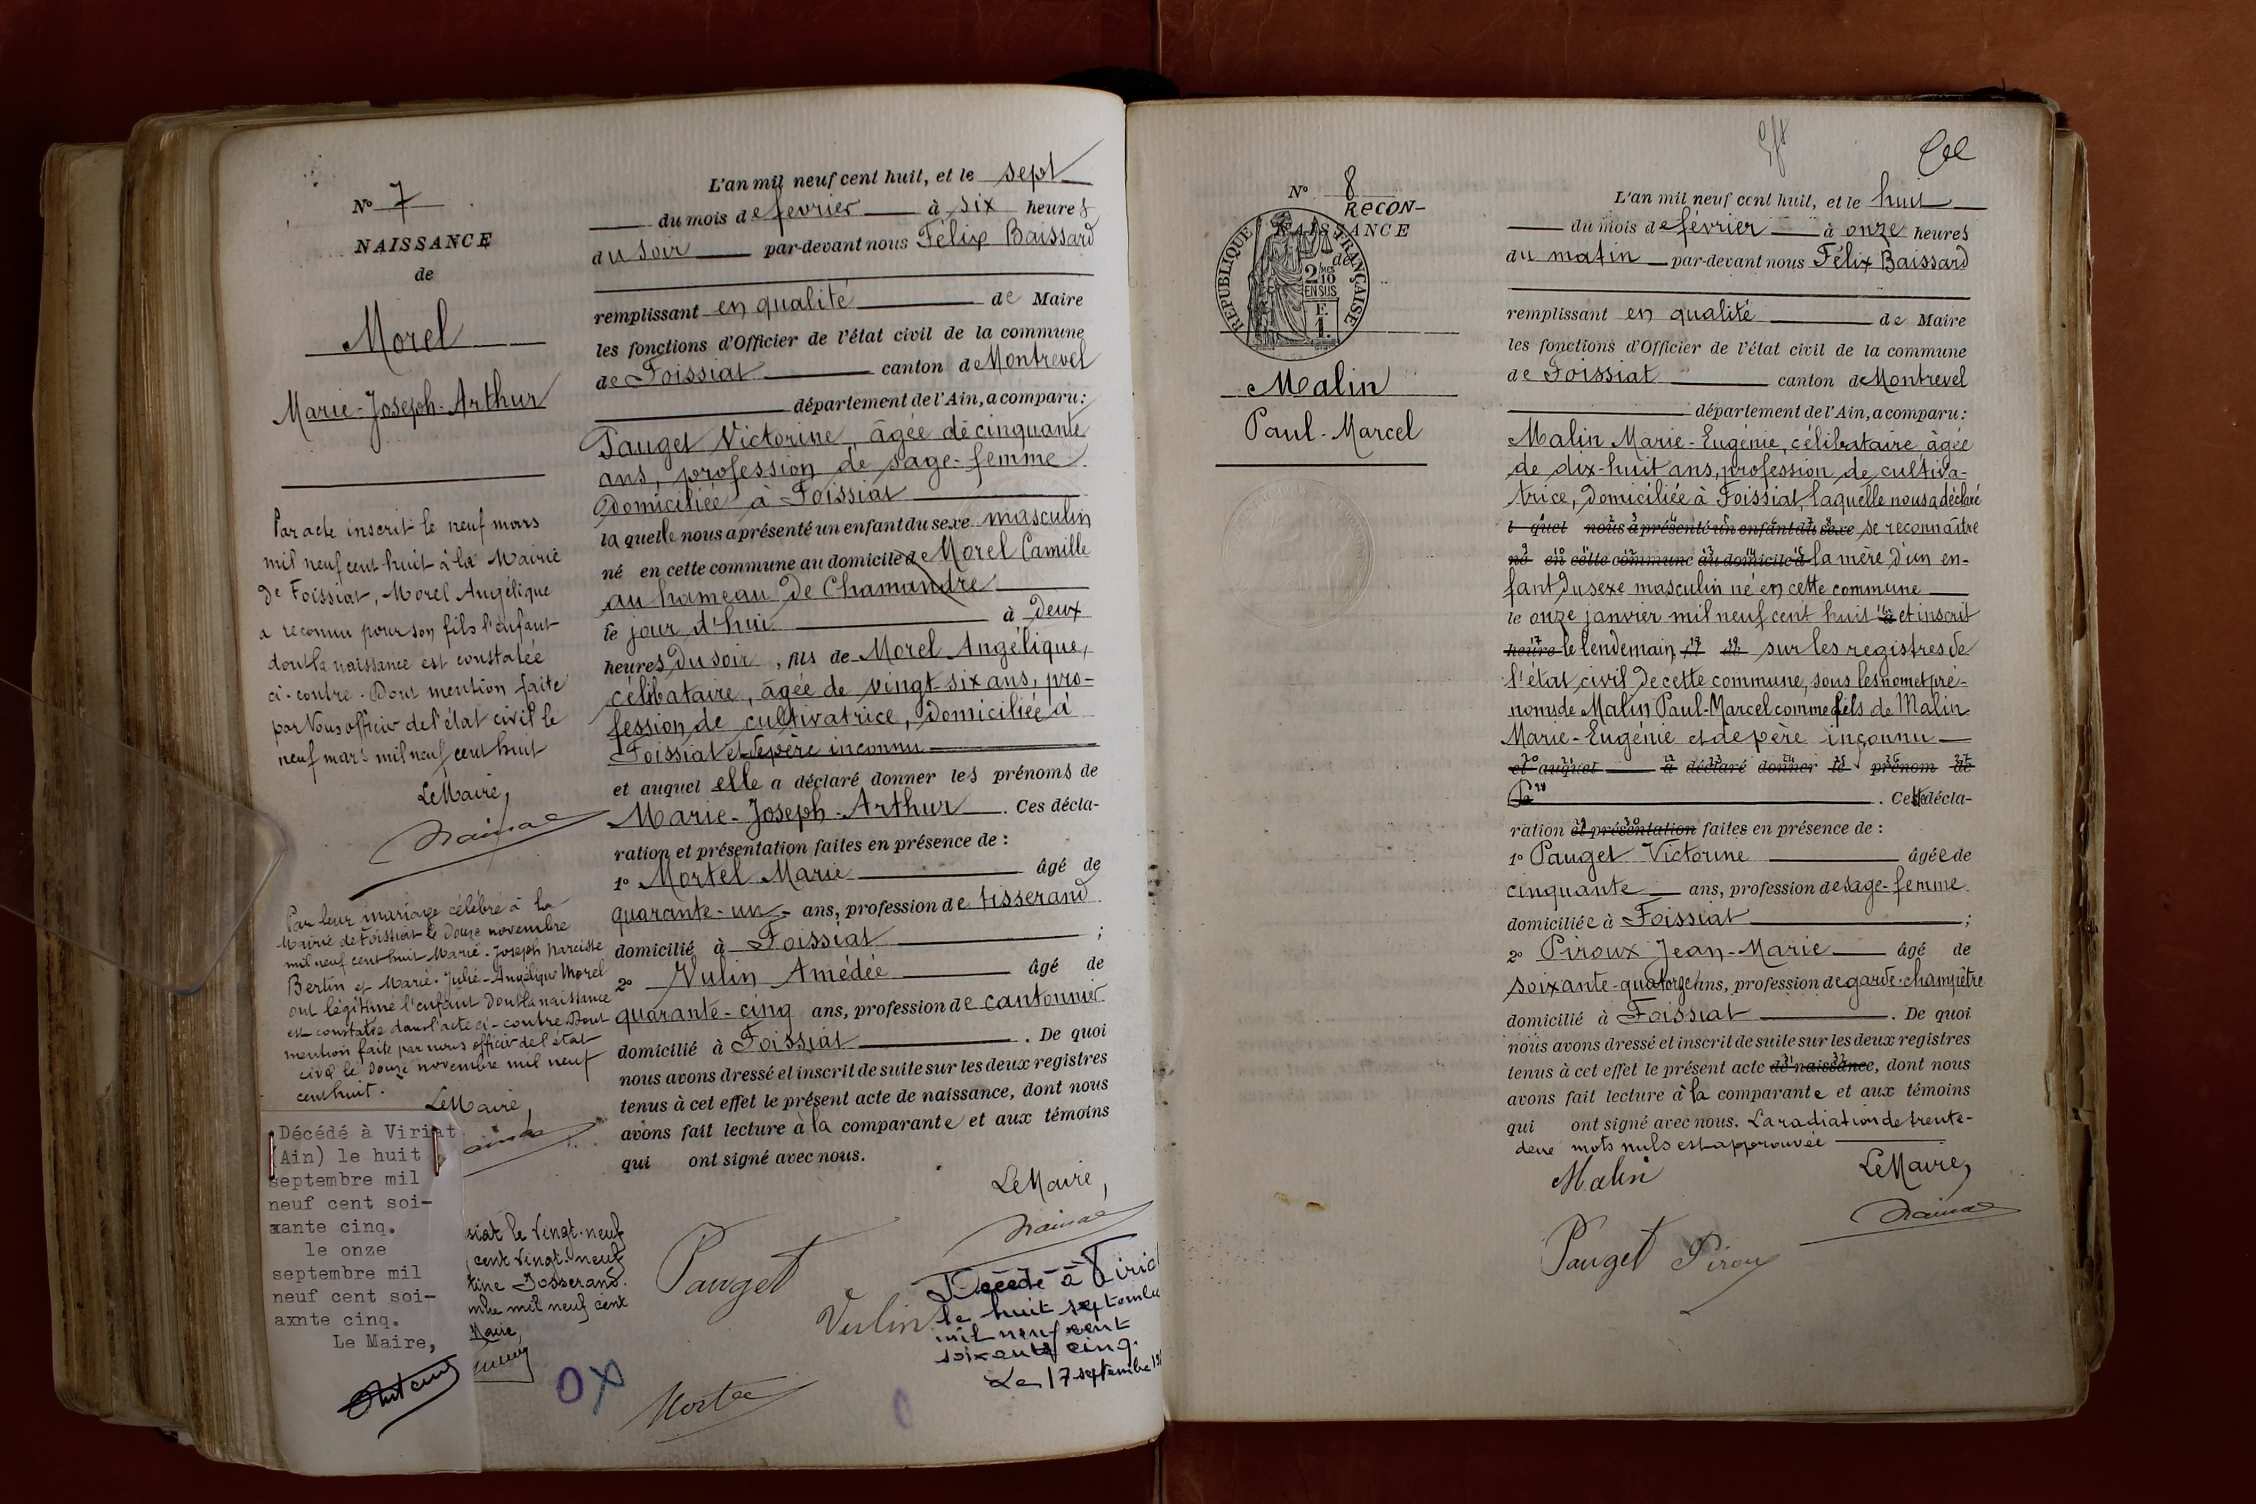 N° 7
NAISSANCE
de
Morel
Marie-Joseph-Arthur
Par acte inscrit le neuf mars
mil neuf cent huit à la Mairie
de Foissiat, Morel Angélique
a reconnu pour son fils l'enfant
dont la naissance est constatée
ci-contre. Dont mention faite
par Nous officier de l'état civil le
neuf mars mil neuf cent huit
Le Maire,
Par leur mariage célébré à la
Mairie de Foissiat le douze novembre
mil neuf cent huit Marie-Joseph Narcisse
Bertin et Marie-Julie-Angélique Morel
ont légitimé l'enfant dont la naissance
est constatée dans l'acte ci-contre Dont
mention faite par nous officier de l'état
civil le douze novembre mil neuf
cent huit.
Le Maire,
Décédé à Viriat
(Ain) le huit
septembre mil
neuf cent soi-
xante cinq.
le onze
septembre mil
neuf cent soi-
axnte cinq.
Le Maire,
siat le vingt-neuf
cent vingt-neuf
tine Josserand.
mbre mil neuf cent
Maire,
L'an mil neuf cent huit, et le sept
du mois de février à six heures
du soir par-devant nous Félix Baissard
remplissant en qualité de Maire
les fonctions d'Officier de l'état civil de la commune
de Foissiat canton de Montrevel
département de l'Ain, a comparu:
Pauget Victorine, âgée de cinquante
ans, profession de sage-femme
domiciliée à Foissiat
laquelle nous a présenté un enfant du sexe masculin
né en cette commune au domicile de Morel Camille
au hameau de Chamandre
le jour d'hui à deux
heures du soir, fils de Morel Angélique,
célibataire, âgée de vingt-six ans, pro-
fession de cultivatrice, domiciliée à
Foissiat et de père inconnu
et auquel elle a déclaré donner les prénoms de
Marie-Joseph-Arthur. Ces décla-
ration et présentation faites en présence de:
1° Mortel Marie âgé de
quarante-un ans, profession de tisserand
domicilié à Foissiat;
2° Vulin Amédée âgé de
quarante-cinq ans, profession de cantonnier
domicilié à Foissiat. De quoi
nous avons dressé et inscrit de suite sur les deux registres
tenus à cet effet le présent acte de naissance, dont nous
avons fait lecture à la comparante et aux témoins
qui ont signé avec nous.
Le Maire,
Pauget
Vulin
Décédé à Viria
le huit septembre
mil neuf cent
soixante cinq.
Le 17 septembre 19
OX
N° 8
RECON-
NAISSANCE
de
RÉPUBLIQUE FRANÇAISE
2 MES
10
EN SUS
F.
1.
Malin
Paul-Marcel
L'an mil neuf cent huit, et le huit
du mois de février à onze heures
du matin par-devant nous Félix Baissard
remplissant en qualité de Maire
les fonctions d'Officier de l'état civil de la commune
de Foissiat canton de Montrevel
département de l'Ain, a comparu:
Malin Marie-Eugénie, célibataire âgée
de dix-huit ans, profession de cultiva-
trice, domiciliée à Foissiat, laquelle nous a déclaré
l quel nous a présenté un enfant du sexe se reconnaître
né en cette commune au domicile d la mère d'un en-
fant du sexe masculin né en cette commune
le onze janvier mil neuf cent huit à et inscrit
heure le lendemain sur les registres de
l'état civil de cette commune, sous les nom et pré-
noms de Malin Paul-Marcel comme fils de Malin
Marie-Eugénie et de père inconnu
et auquel a déclaré donner le prénom de
Pa. Cette décla-
ration et présentation faites en présence de:
1° Pauget Victorine âgée de
cinquante ans, profession de sage-femme
domiciliée à Foissiat;
2° Piroux Jean-Marie âgé de
soixante-quatorze ans, profession de garde-champêtre
domicilié à Foissiat. De quoi
nous avons dressé et inscrit de suite sur les deux registres
tenus à cet effet le présent acte de naissance, dont nous
avons fait lecture à la comparante et aux témoins
qui ont signé avec nous. La radiation de trente-
deux mots nuls est approuvée
Malin
Le Maire,
Pauget Pirou